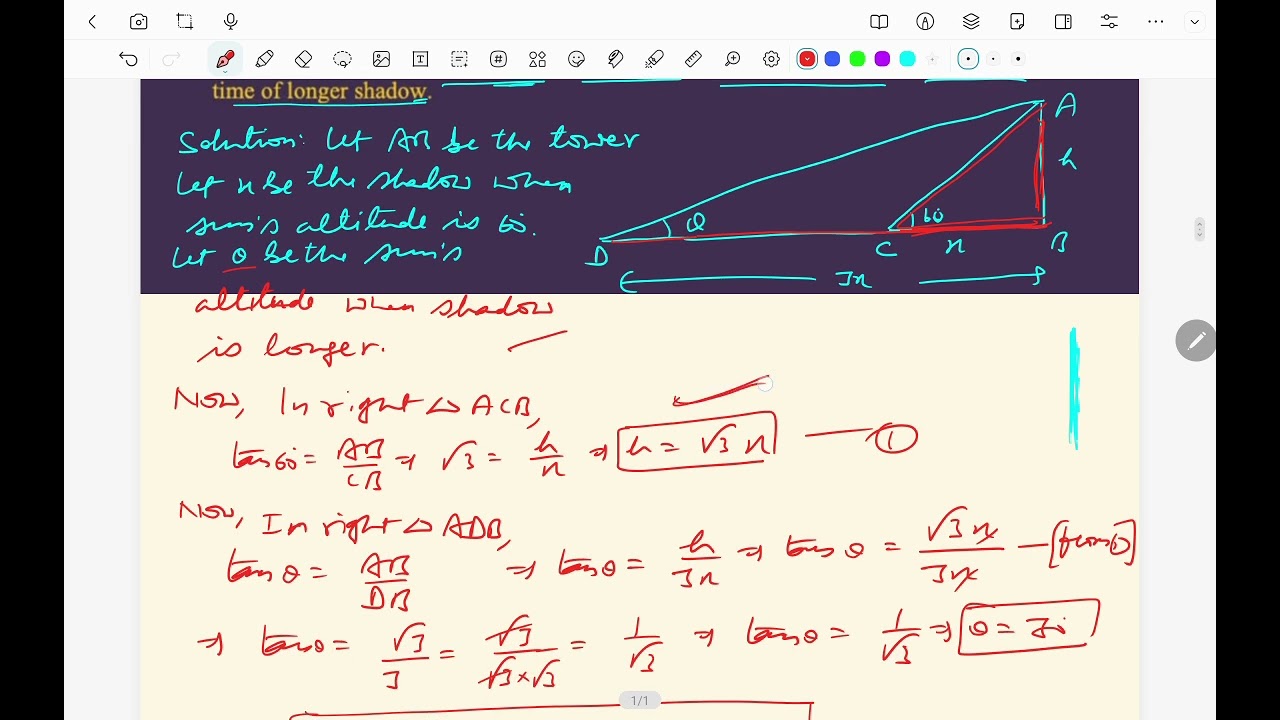 time of longer shadow.
Solution: Let AB be the tower
Let x be the shadow when
sun's altitude is 60°.
Let θ be the sun's
altitude when shadow
is longer.
A
h
θ
60°
D
C
x
B
3x
Now, In right △ ACB,
tan60° = AB/CB ⇒ √3 = h/x ⇒ h = √3 x — ①
Now, In right △ ADB,
tanθ = AB/DB ⇒ tanθ = h/3x ⇒ tanθ = √3x/3x — [from ①]
⇒ tanθ = √3/3 = √3/√3×√3 = 1/√3 ⇒ tanθ = 1/√3 ⇒ θ = 30°
1/1